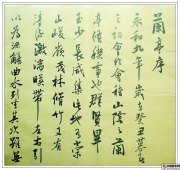 蘭亭序
永和九年歲在癸丑暮春
之初會於會稽山陰之蘭
亭脩禊事也群賢畢
至少長咸集此地有崇
山峻嶺茂林脩竹又有
清流激湍映帶左右引
以為流觴曲水列坐其次雖無